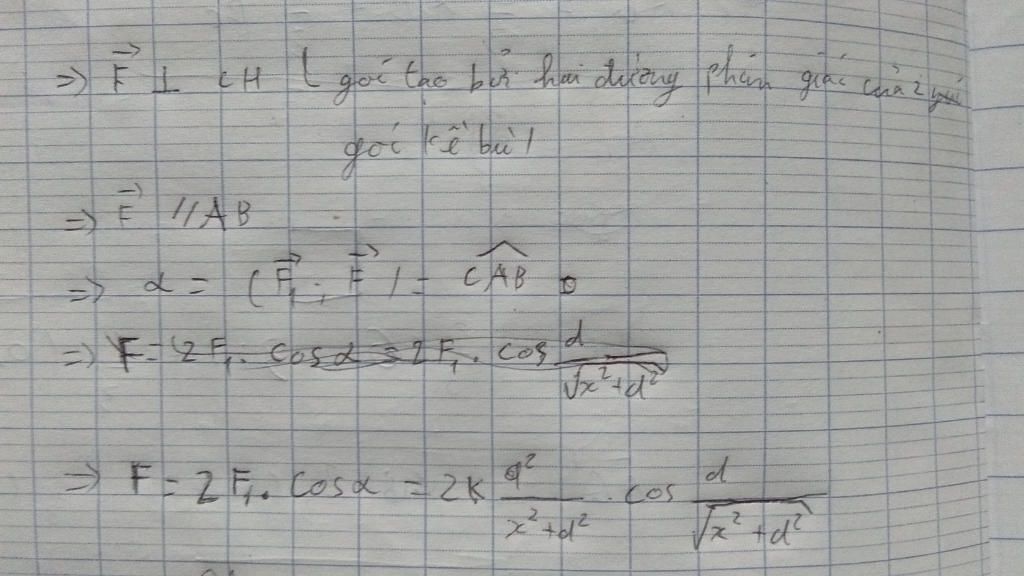 => F⃗ ⊥ CH ( goć tạo bởi hai đường phân giác của 2
goć kề bù )
=> F⃗ // AB
=> α = (F⃗₁ ; F⃗) = CAB
=> F = 2F₁. cosα = 2F₁. cos d/√x²+d²
=> F = 2F₁. cosα = 2k q²/x²+d² . cos d/√x²+d²